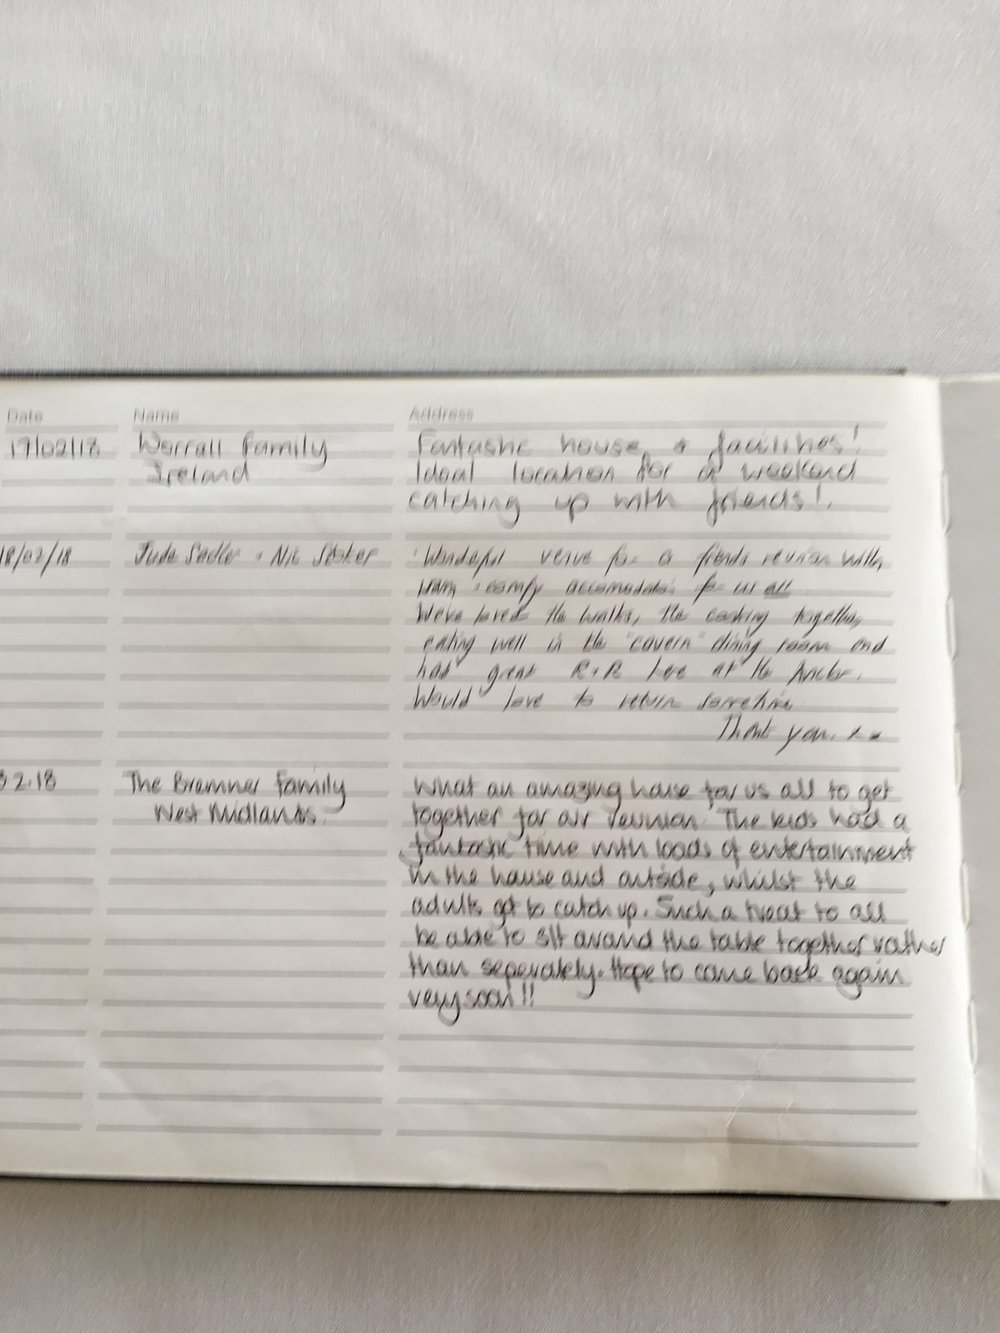 Date Name Address
17/02/18 Worrall Family Fantastic house + facilities!
Ireland Ideal location for a weekend
catching up with friends!
18/02/18 Jude Sadler + Nic Stoker Wonderful venue for a friends reunion with
warm + comfy accomodation for us all
We've loved the walks, the cooking together,
eating well in the "cavern" dining room and
had great R+R here at the Anchor.
Would love to return sometime
Thank you. x x
2.18 The Bremner Family What an amazing house for us all to get
West Midlands. together for our reunion. The kids had a
fantastic time with loads of entertainment
in the house and outside, whilst the
adults got to catch up. Such a treat to all
be able to sit around the table together rather
than seperately. Hope to come back again
very soon!!